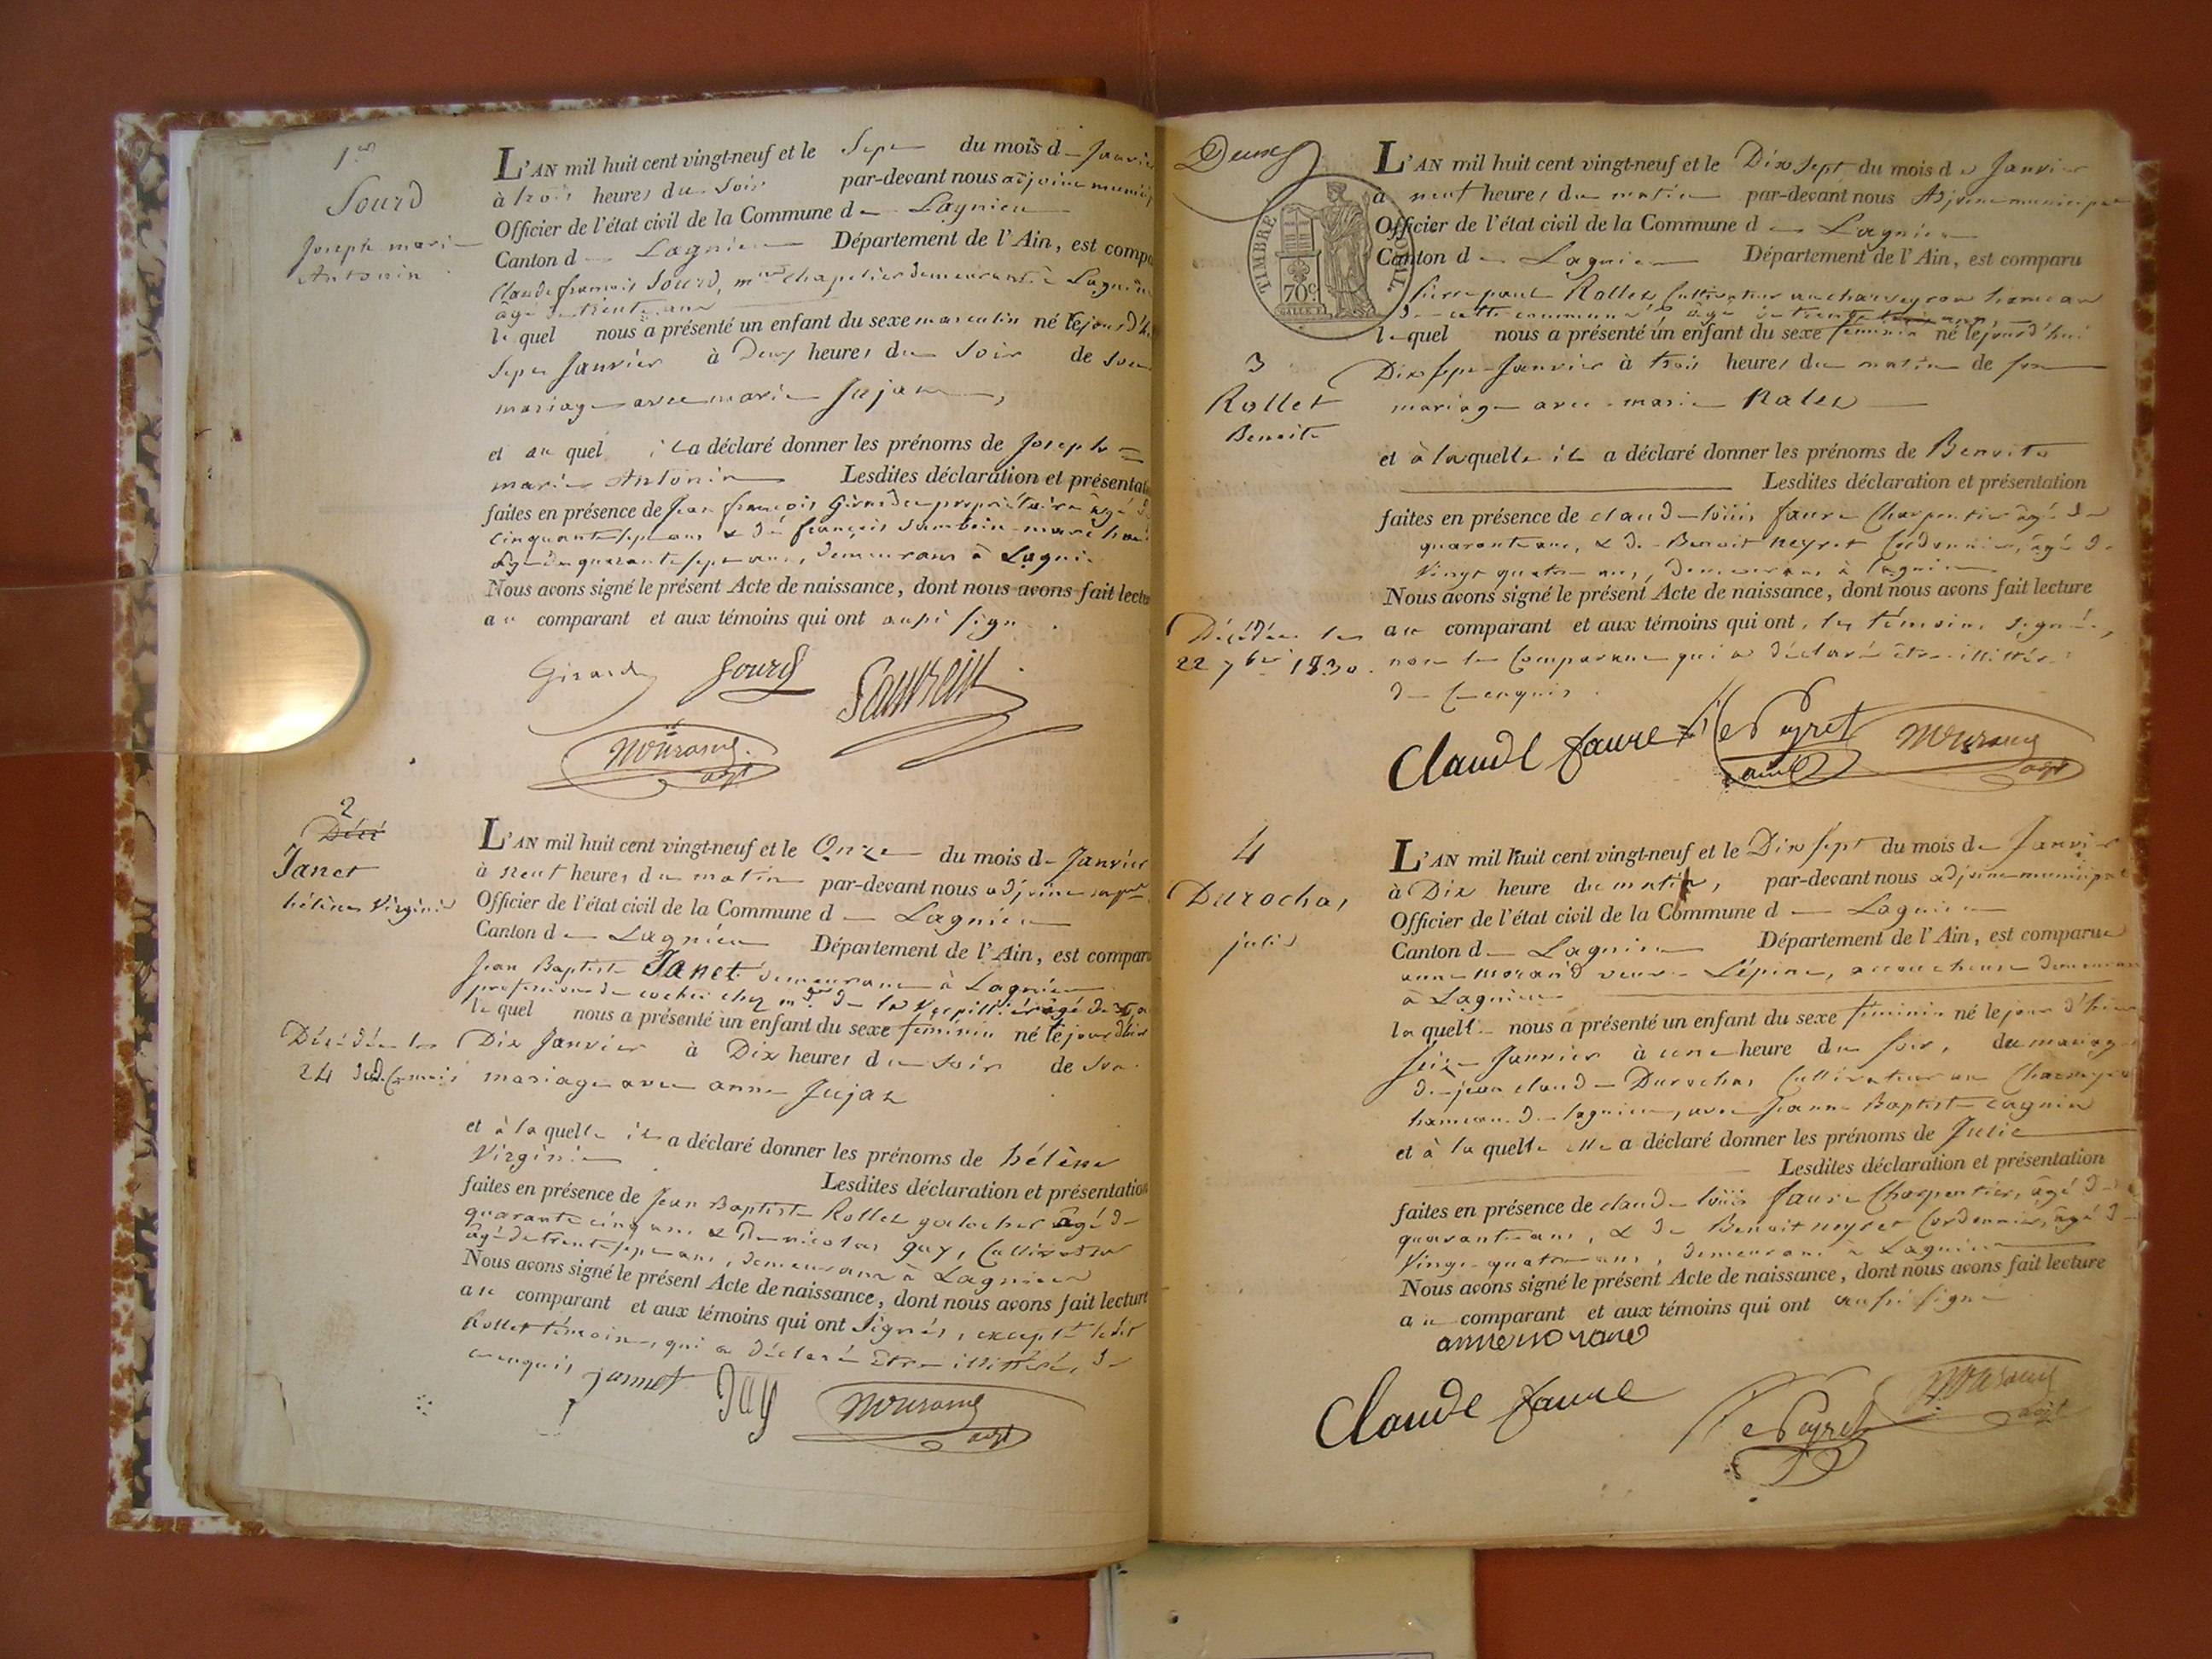 1er
Sourd
Joseph marie
Antonin
L'AN mil huit cent vingt-neuf et le Sept du mois de Janvier
à trois heures du Soir par-devant nous adjoint municip
Officier de l'état civil de la Commune de Lagnieu
Canton de Lagnieu Département de l'Ain, est compa
Claude françois Sourd, md chapelier demeurant à Lagnieu
âgé de trente ans
le quel nous a présenté un enfant du sexe masculin né le jour d'h
Sept Janvier à Deux heures du Soir de son
mariage avec marie Jujat,
et au quel il a déclaré donner les prénoms de Joseph
marie Antonin Lesdites déclaration et présentat
faites en présence de Jean françois Girard propriétaire âgé d
cinquante sept ans & de françois
âgé de quarante sept ans, demeurans à Lagnieu
Nous avons signé le présent Acte de naissance, dont nous avons fait lectu
au comparant et aux témoins qui ont aussi signé.
Girard Sourd
adjt
2
Décé
Janet
hélène Virginie
Décédée le
24 du d. mois
L'AN mil huit cent vingt-neuf et le Onze du mois de Janvier
à neuf heures du matin par-devant nous adjoint
Officier de l'état civil de la Commune de Lagnieu
Canton de Lagnieu Département de l'Ain, est comparu
Jean Baptiste Janet demeurant à Lagnieu
profession de cocher chez md. de la Verpillière âgé de
le quel nous a présenté un enfant du sexe féminin né le jour d'hier
Dix Janvier à Dix heures du Soir de son
mariage avec anne Jujat
et à la quelle il a déclaré donner les prénoms de hélène
Virginie Lesdites déclaration et présentation
faites en présence de Jean Baptiste Rollet galocher âgé de
quarante cinq ans & De nicolas guy, Cultivateur
âgé de trente sept ans, demeurans à Lagnieu
Nous avons signé le présent Acte de naissance, dont nous avons fait lecture
au comparant et aux témoins qui ont signés, excepté ledit
Rollet témoin, qui a déclaré être illittéré, de
ce enquis
jannet guy
adjt
Deux
TIMBRE ROYAL
70c
3
Rollet
Benoite
Décédée le
22 7bre 1830.
L'AN mil huit cent vingt-neuf et le Dix Sept du mois de Janvier
à neuf heures du matin par-devant nous Adjoint municipal
Officier de l'état civil de la Commune de Lagnieu
Canton de Lagnieu Département de l'Ain, est comparu
pierre paul Rollet Cultivateur au charveyron hameau
de cette commune âgé de trente
le quel nous a présenté un enfant du sexe féminin né le jourd'hui
Dix sept Janvier à trois heures du matin de son
mariage avec marie Ralet
et à la quelle il a déclaré donner les prénoms de Benoite
Lesdites déclaration et présentation
faites en présence de claude louis faure Charpentier âgé de
quarante ans, & de Benoit neyret Cordonnier, âgé de
Vingt quatre ans, demeurans à lagnieu
Nous avons signé le présent Acte de naissance, dont nous avons fait lecture
au comparant et aux témoins qui ont, les témoins signés,
non le Comparant qui a déclaré être illittéré
de ce enquis.
Claude faure
adjt
4
Durochas
julie
L'AN mil huit cent vingt-neuf et le Dix sept du mois de Janvier
à Dix heure du matin, par-devant nous adjoint municipal
Officier de l'état civil de la Commune de Lagnieu
Canton de Lagnieu Département de l'Ain, est comparue
anne morand veuve Lépine, accoucheuse demeurant
à Lagnieu
la quelle nous a présenté un enfant du sexe féminin né le jour d'hier
seize Janvier à une heure du soir, du mariage
de jean claude Durochas Cultivateur au
hameau de lagnieu, avec Jeanne Baptiste cagnin
et à la quelle elle a déclaré donner les prénoms de Julie
Lesdites déclaration et présentation
faites en présence de claude louis faure Charpentier, âgé de
quarante ans, & de Benoit neyret Cordonnier, âgé de
Vingt quatre ans, demeurans à Lagnieu
Nous avons signé le présent Acte de naissance, dont nous avons fait lecture
au comparant et aux témoins qui ont aussi signé
anne morand
Claude faure
adjt